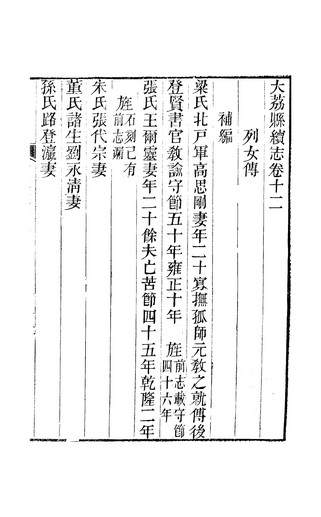 大荔縣續志卷十二
列女傳
補編
梁氏北戸軍高思剛妻年二十寡撫孤師元教之就傅後
登賢書官教諭守節五十年雍正十年 旌前志載守節四十六年
張氏王爾靈妻年二十餘夫亡苦節四十五年乾隆二年
旌石刻已有前志漏
朱氏張代宗妻
董氏諸生劉永清妻
孫氏路登瀛妻